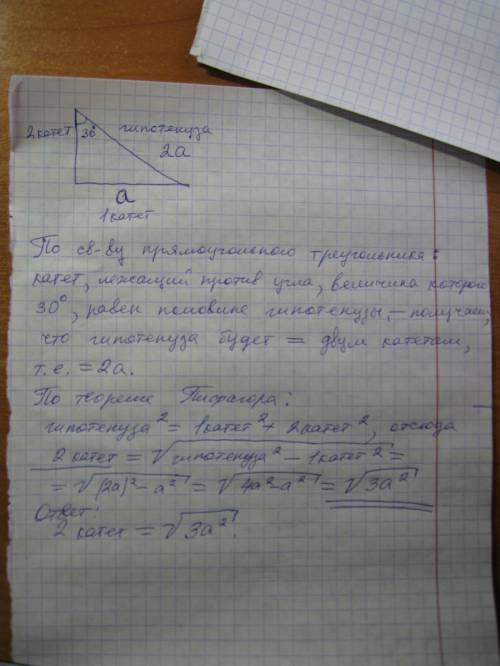 2 катет 30° гипотенуза
2а
а
1 катет
По св-ву прямоугольного треугольника:
катет, лежащий против угла, величина которого
30°, равен половине гипотенузы, – получаем,
что гипотенуза будет = двум катетам,
т.е. = 2а.
По теореме Пифагора:
гипотенуза² = 1катет² + 2катет², отсюда
2 катет = √гипотенуза² – 1катет² =
= √(2а)² – а² = √4а² – а² = √3а²
Ответ:
2 катет = √3а²